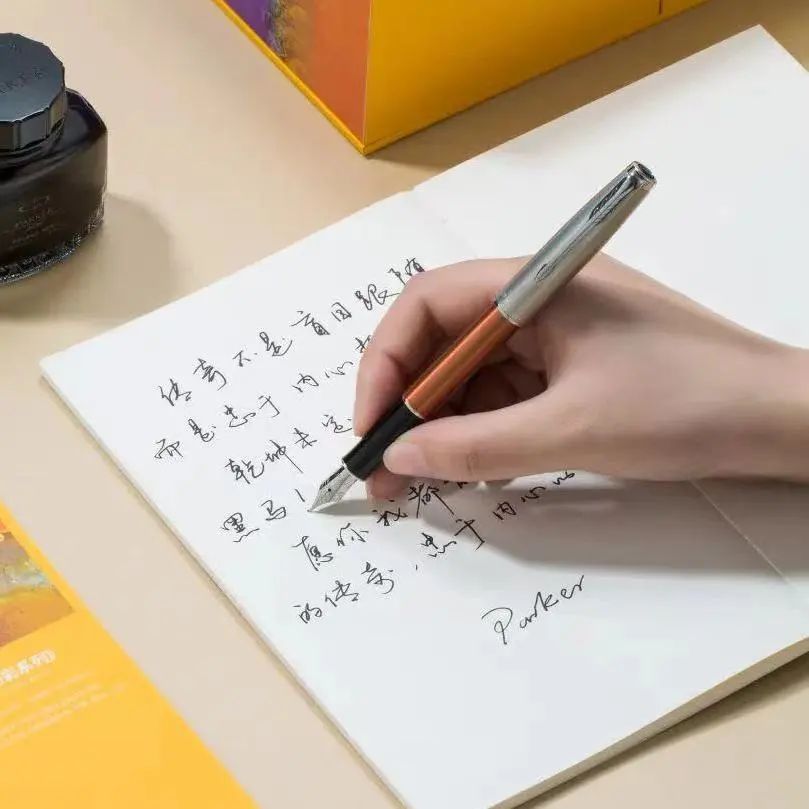 传奇不是盲目跟随
而是忠于内心
乾坤未定
黑马
愿你我都
的传奇,忠于内心
Parker
PARKER
系列》